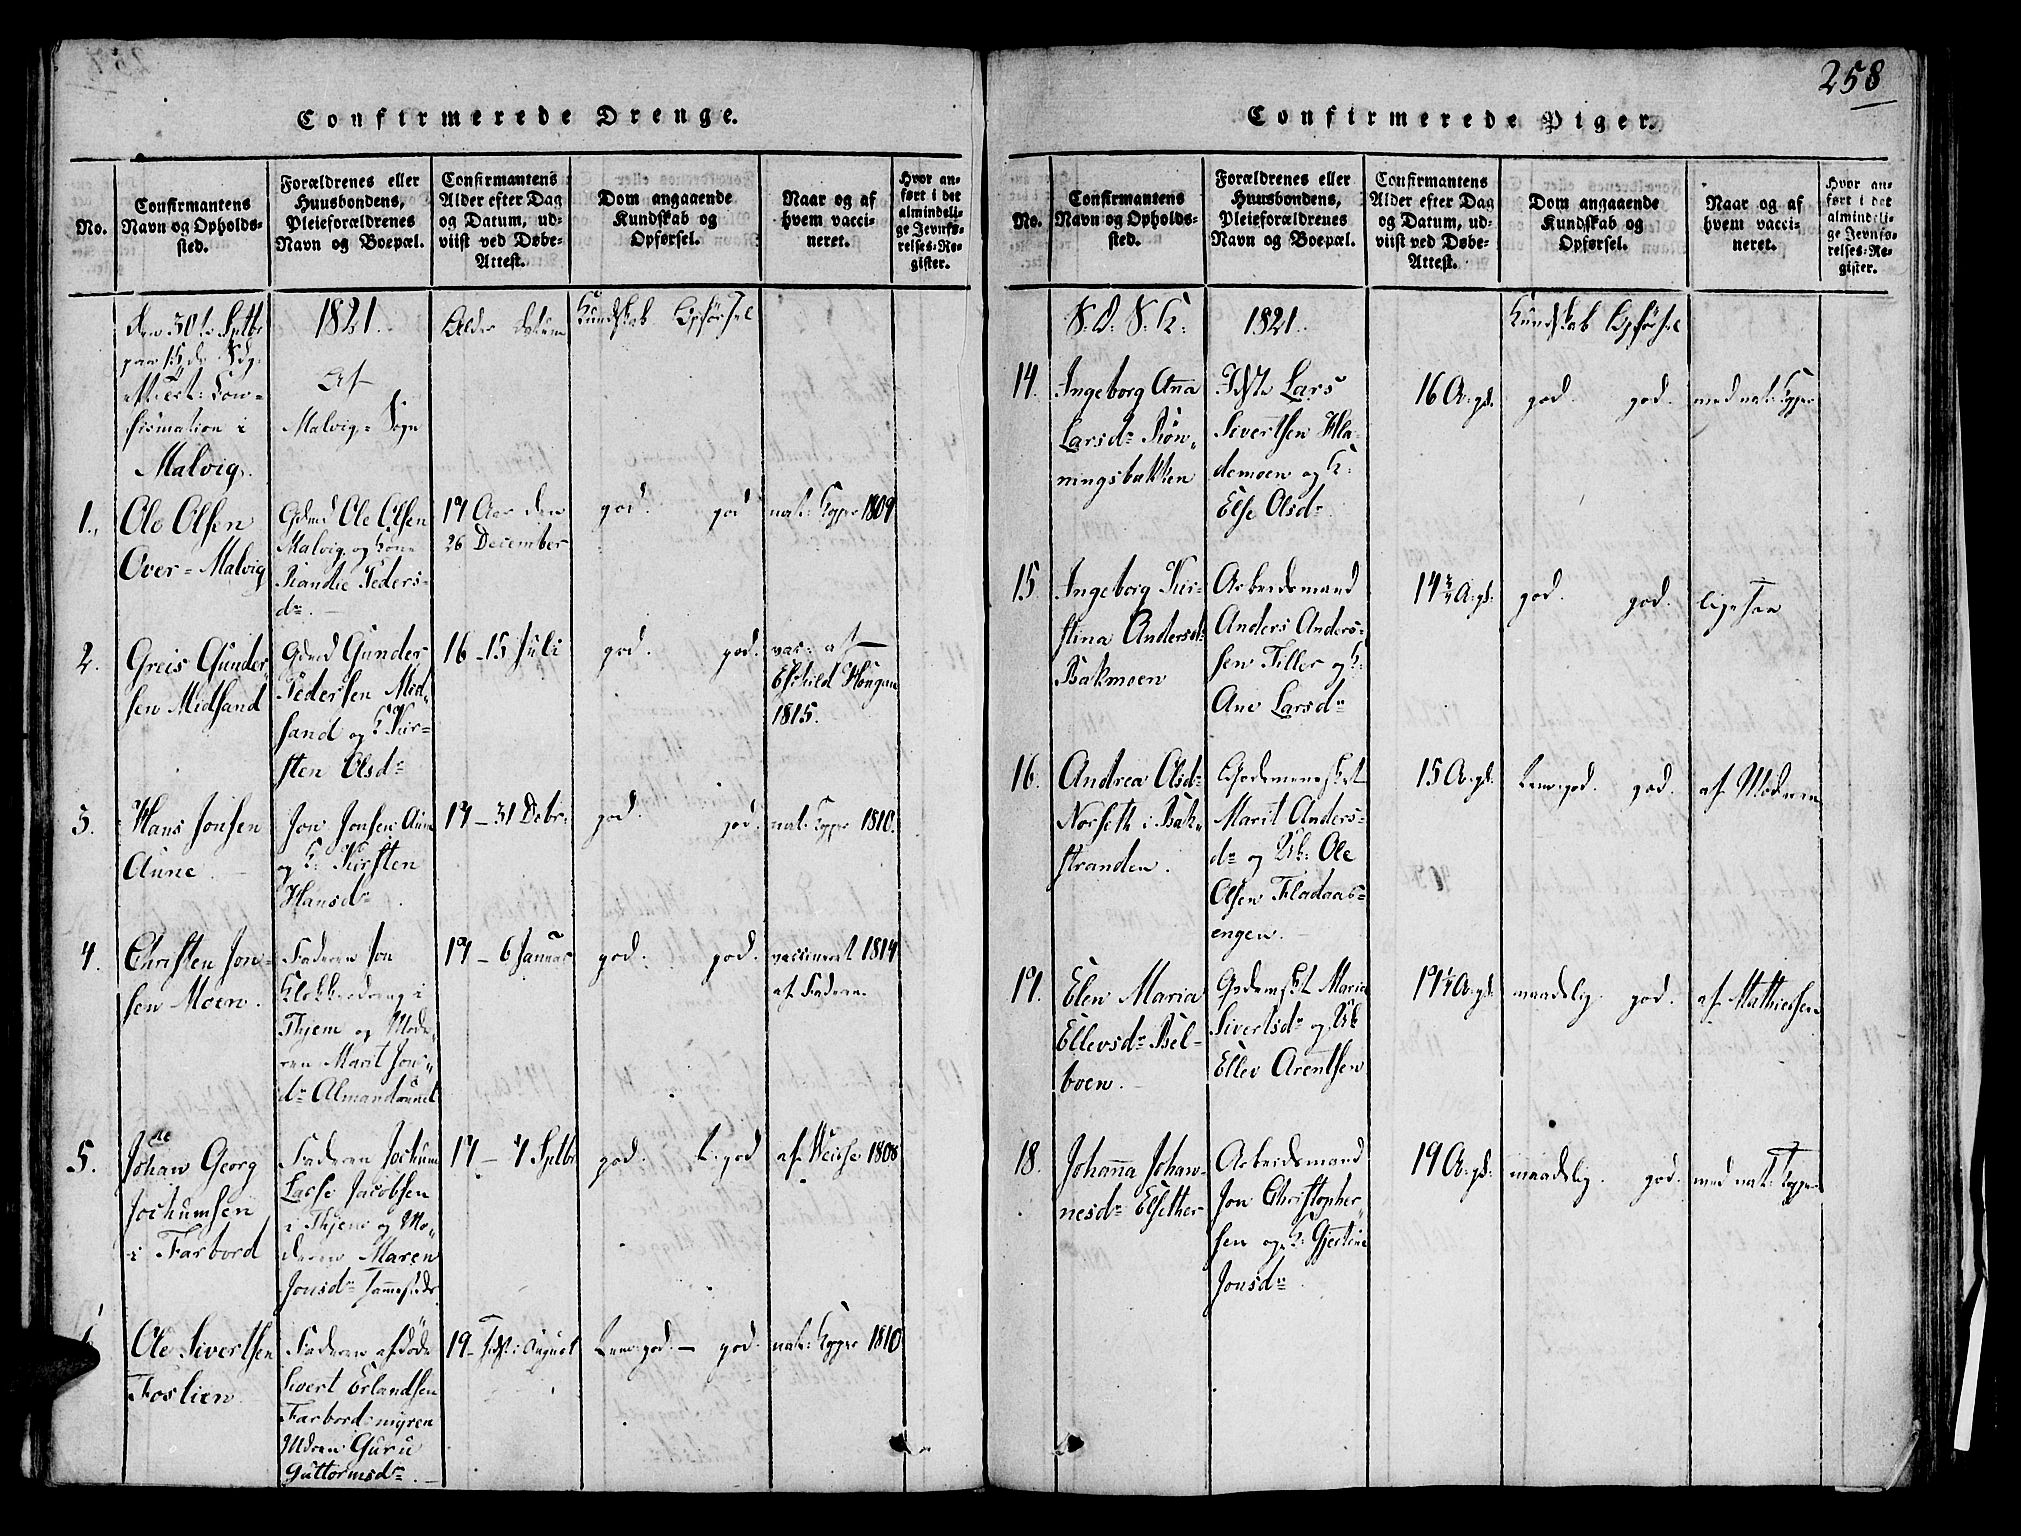 258
Confirmerede Drenge.
No.
Confirmantens
Navn og Opholds-
sted.
Forældrenes eller
Huusbondens,
Pleieforældrenes
Navn og Boepæl.
Confirmantens
Alder efter Dag
og Datum, ud-
viist ved Døbe-
Attest.
Dom angaaende
Kundskab og
Opførsel.
Naar og af
hvem vacci-
neret.
Hvor an-
ført i det
almindeli-
ge Jevnfø-
relses-Re-
gister.
den 30te Septbr
paa 15de Sdg.
Con-
firmation i
Malvig.
1821.
Af
Malvig-Sogn
Alder Datum
Kundskab Opførsel
1.
Ole Olsen
Over-Malvig
Gdmd Ole Olsen
Malvig og Kone
Randie Peders-
dr.
17 Aar den
26 December
god. god
nat: Kopper 1809
2.
Greis Gunder-
sen Midsand
Gdmd Gunder
Pedersen Mid-
sand og K Kir-
sten Olsdr
16 - 15 Juli
god. god.
vac: af
Eskild Hougan
1815.
3.
Hans Jonsen
Aune.
Jon Jonsen Aune
og K: Kirsten
Hansdr
17 - 31 Debr:
god. god.
nat: Kopper 1810.
4.
Christen Jon-
sen Moen.
Faderen Jon
i
Thjem og Mode-
ren Marit Jons-
dr
17 - 6 Januar
god. god.
vaccineret 1814
af Faderen.
5.
Johan Georg
Jochumsen
i Farbord
Faderen Jochum
Lasse Jacobsen
i Thjem og Mo-
deren Maren
Jonsdr
17 - 7 Septbr
god. god
af Weisse 1808
6
Ole Sivertsen
Foslien.
Faderen afdöde
Sivert Erlandsen
Farbordsmyren
Mdren Guru
Guttormsdr.
19 - August
god. - god.
nat: Kopper 1810
Confirmerede Piger.
No.
Confirmantens
Navn og Opholds-
sted.
Forældrenes eller
Huusbondens,
Pleieforældrenes
Navn og Boepæl.
Confirmantens
Alder efter Dag
og Datum, ud-
viist ved Døbe-
Attest.
Dom angaaende
Kundskab og
Opførsel.
Naar og af
hvem vacci-
neret.
Hvor an-
ført i det
almindeli-
ge Jevnfø-
relses-Re-
gister.
S: D: S: K:
1821.
Kundskab Opførsel
14.
Ingeborg Anna
Larsdr Røn-
ningsbakken
Lars
Sivertsen Hla-
demoen og K:
Else Olsdr
16 A: gl.
god. god.
med nat: Kopper
15.
Ingeborg Kir-
stina Andersdr
Bakmoen
Arbeidsmand
Anders Anders-
sen Tiller og K:
Ane Larsdr
14 3/4 A: gl:
god. god.
ligesaa
16.
Andrea Olsdr
Norseth i Bak-
stranden.
Marit Anders-
dr og Uk: Ole
Olsen Fladaas-
engen.
15 A: gl.
god. god.
af Moderen
17.
Elen Maria
Ellevsdr Bel-
boen.
Maria
Sivertsdr og Uk
Ellev Arentsen
17 1/2 A: gl.
maadelig. god.
af Mathiesen
18.
Johanna Johan-
nesdr Elsether
Arbeidsmand
Jon Christopher-
sen og K: Gjertine
Jonsdr
19 A: gl:
maadelig. god.
med nat: Kopper